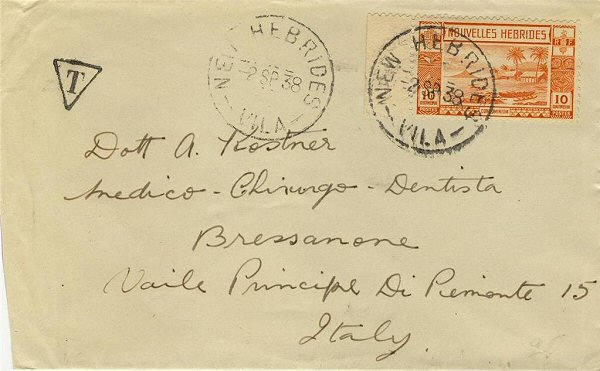 T
NEW HEBRIDES
2 SP 38
VILA
NOUVELLES HEBRIDES
RF
10
10
NEW HEBRIDES
2 SP 38
VILA
Dott A. Kostner
Medico - Chirurgo - Dentista
Bressanone
Vaile Principe Di Piemonte 15
Italy.